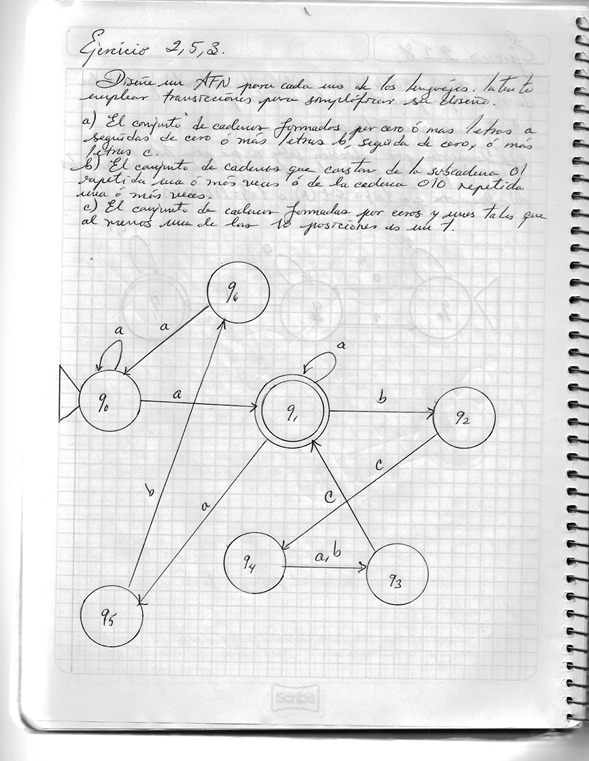 Ejercicio 2,5,3.
Diseñe un AFN para cada uno de los lenguajes. Intente
emplear transiciones para simplificar su diseño.
a) El conjunto de cadenas formados por cero ó mas letras a
seguidas de cero ó más letras b, seguida de cero, ó más
letras c.
b) El conjunto de cadenas que constan de la subcadena 01
repetida una ó más veces ó de la cadena 010 repetida
una ó más veces.
c) El conjunto de cadenas formadas por ceros y unos tales que
al menos una de las 10 posiciones es un 1.
q6
a
a
a
q0
a
q1
b
q2
c
b
a
c
q4
a,b
q3
q5
Scribe